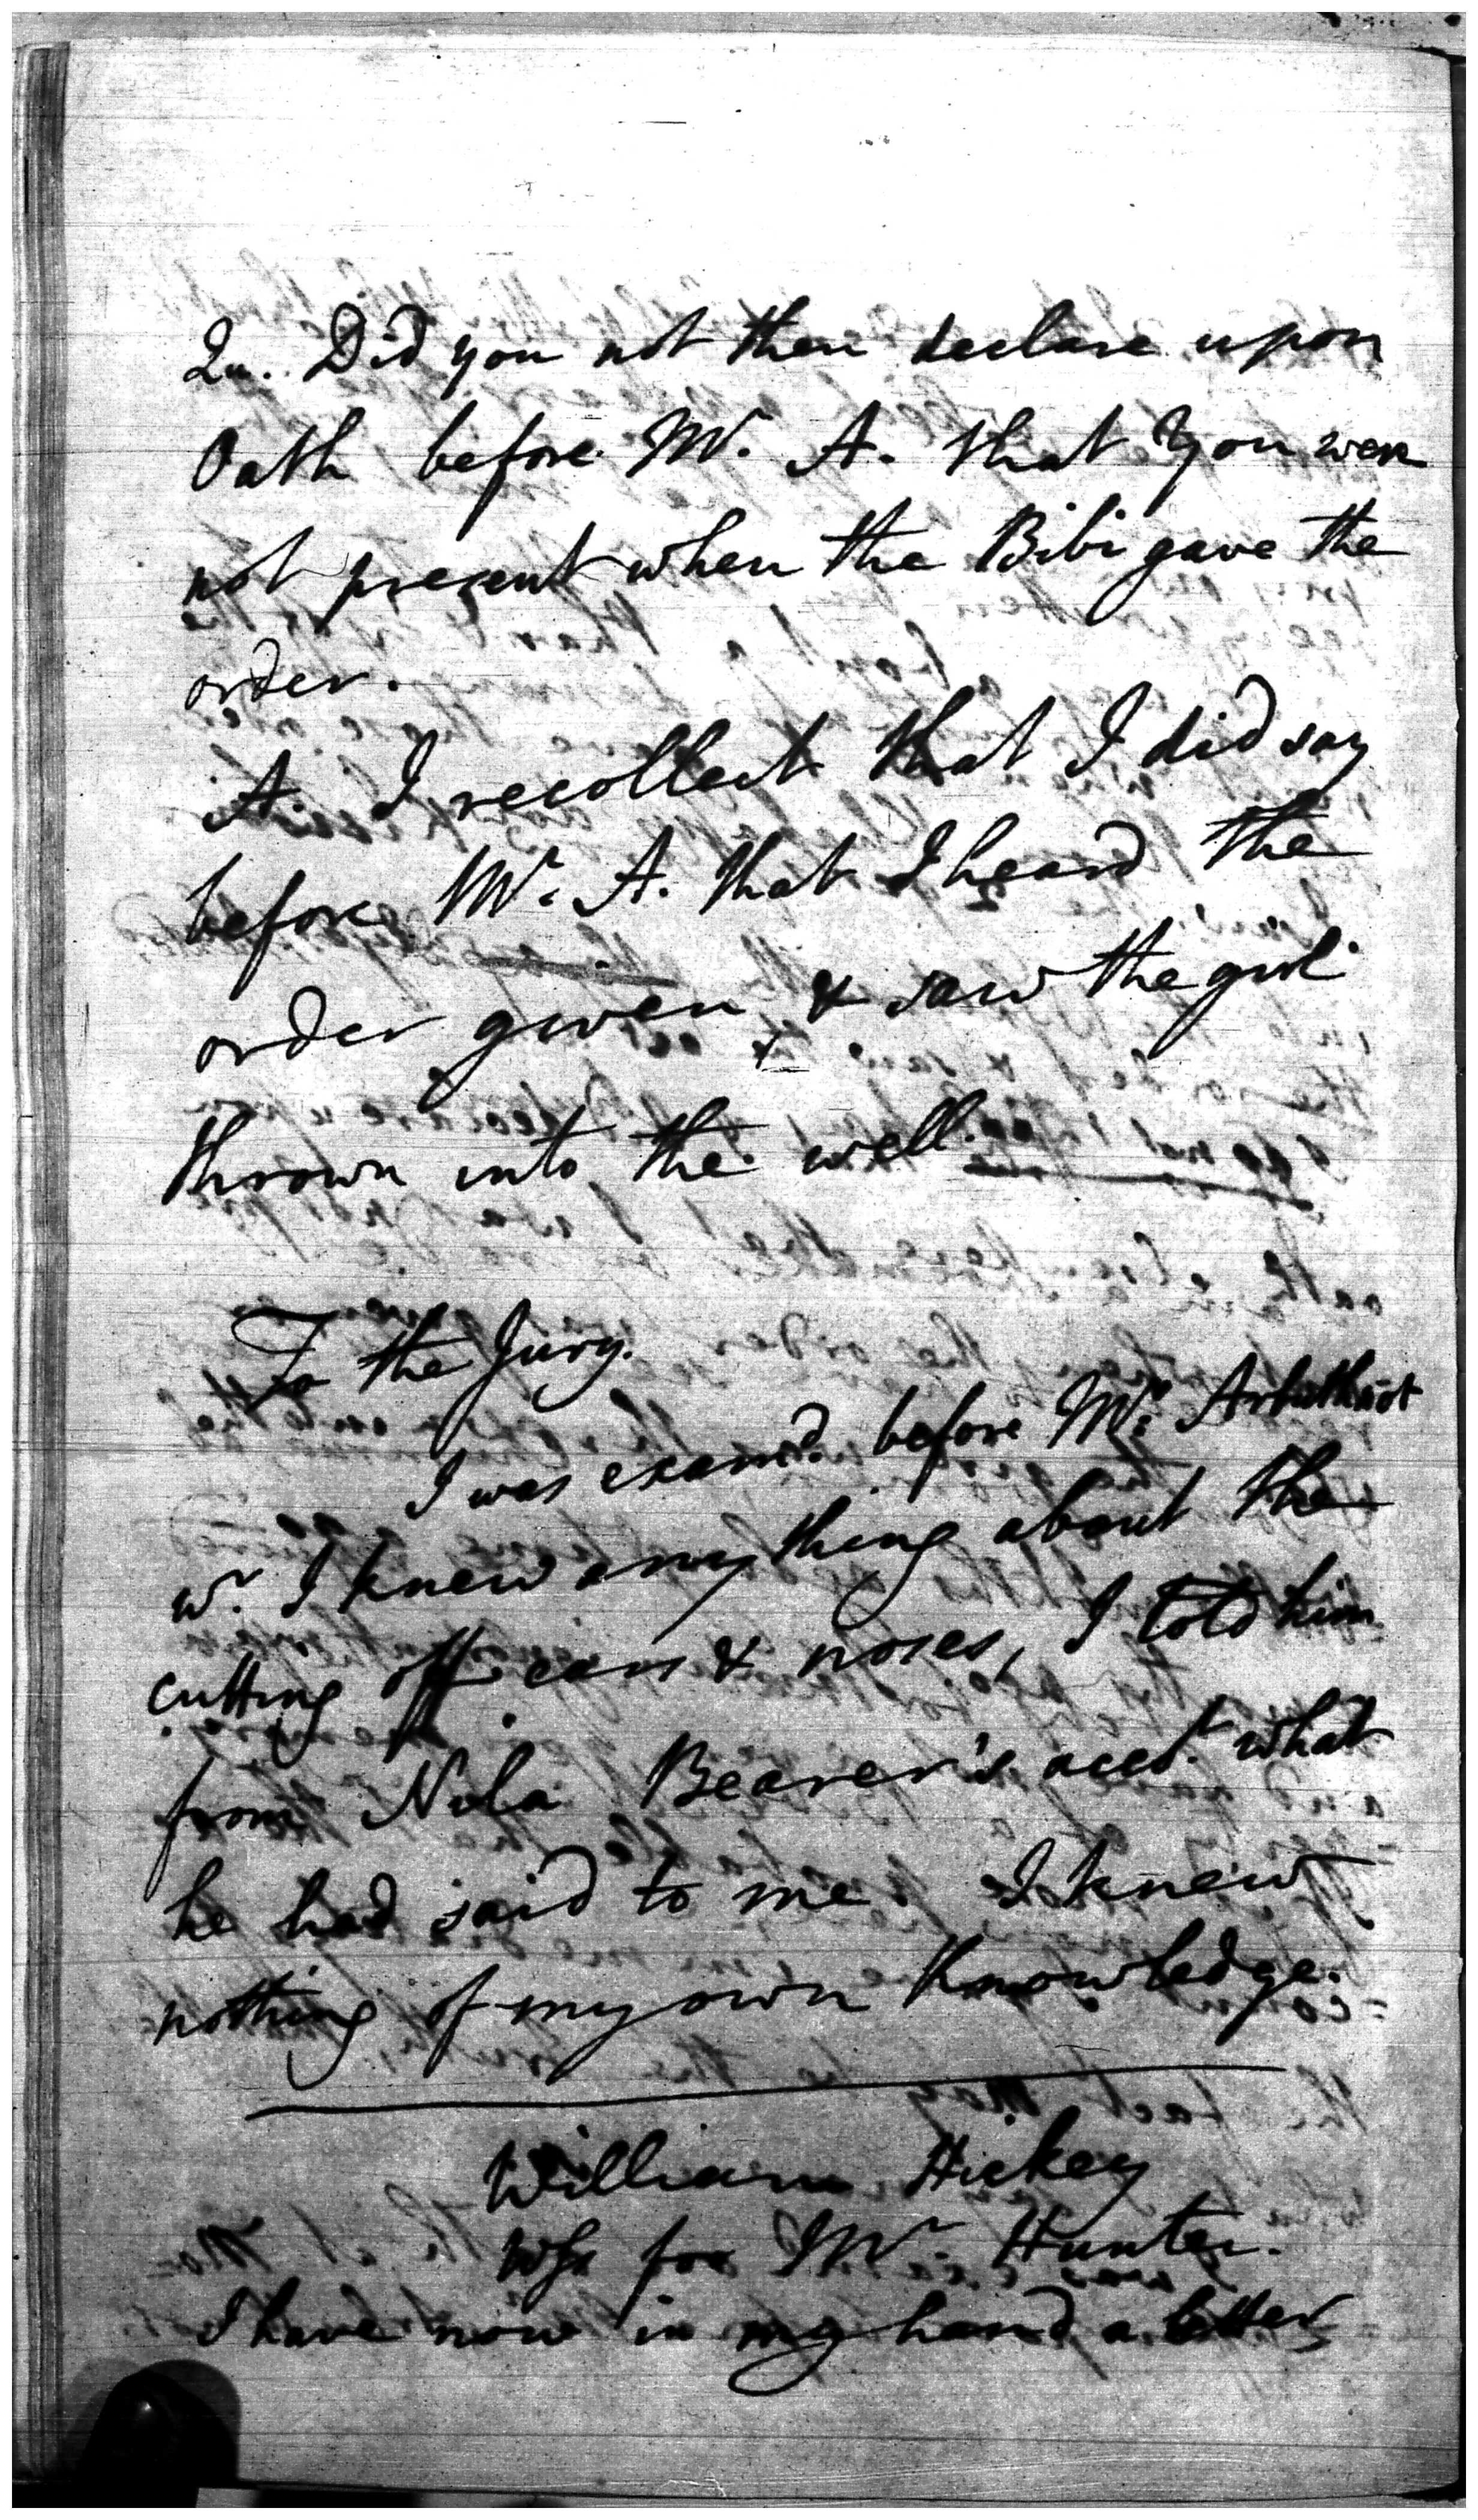 Qu. Did you not then declare upon
Oath before Mr. A. that you were
not present when the Bibi gave the
order.
A. I recollect that I did say
before Mr. A. that I heard the
order given & saw the girl
thrown into the well.
To the Jury.
I was examd. before Mr. Arbuthnot
wr. I knew any thing about the
cutting off ears & noses, I told him
from Nola Bearer's acct. what
he had said to me. I knew
nothing of my own knowledge.
William Hickey
Wss for Mr. Hunter.
I have now in my hand a letter